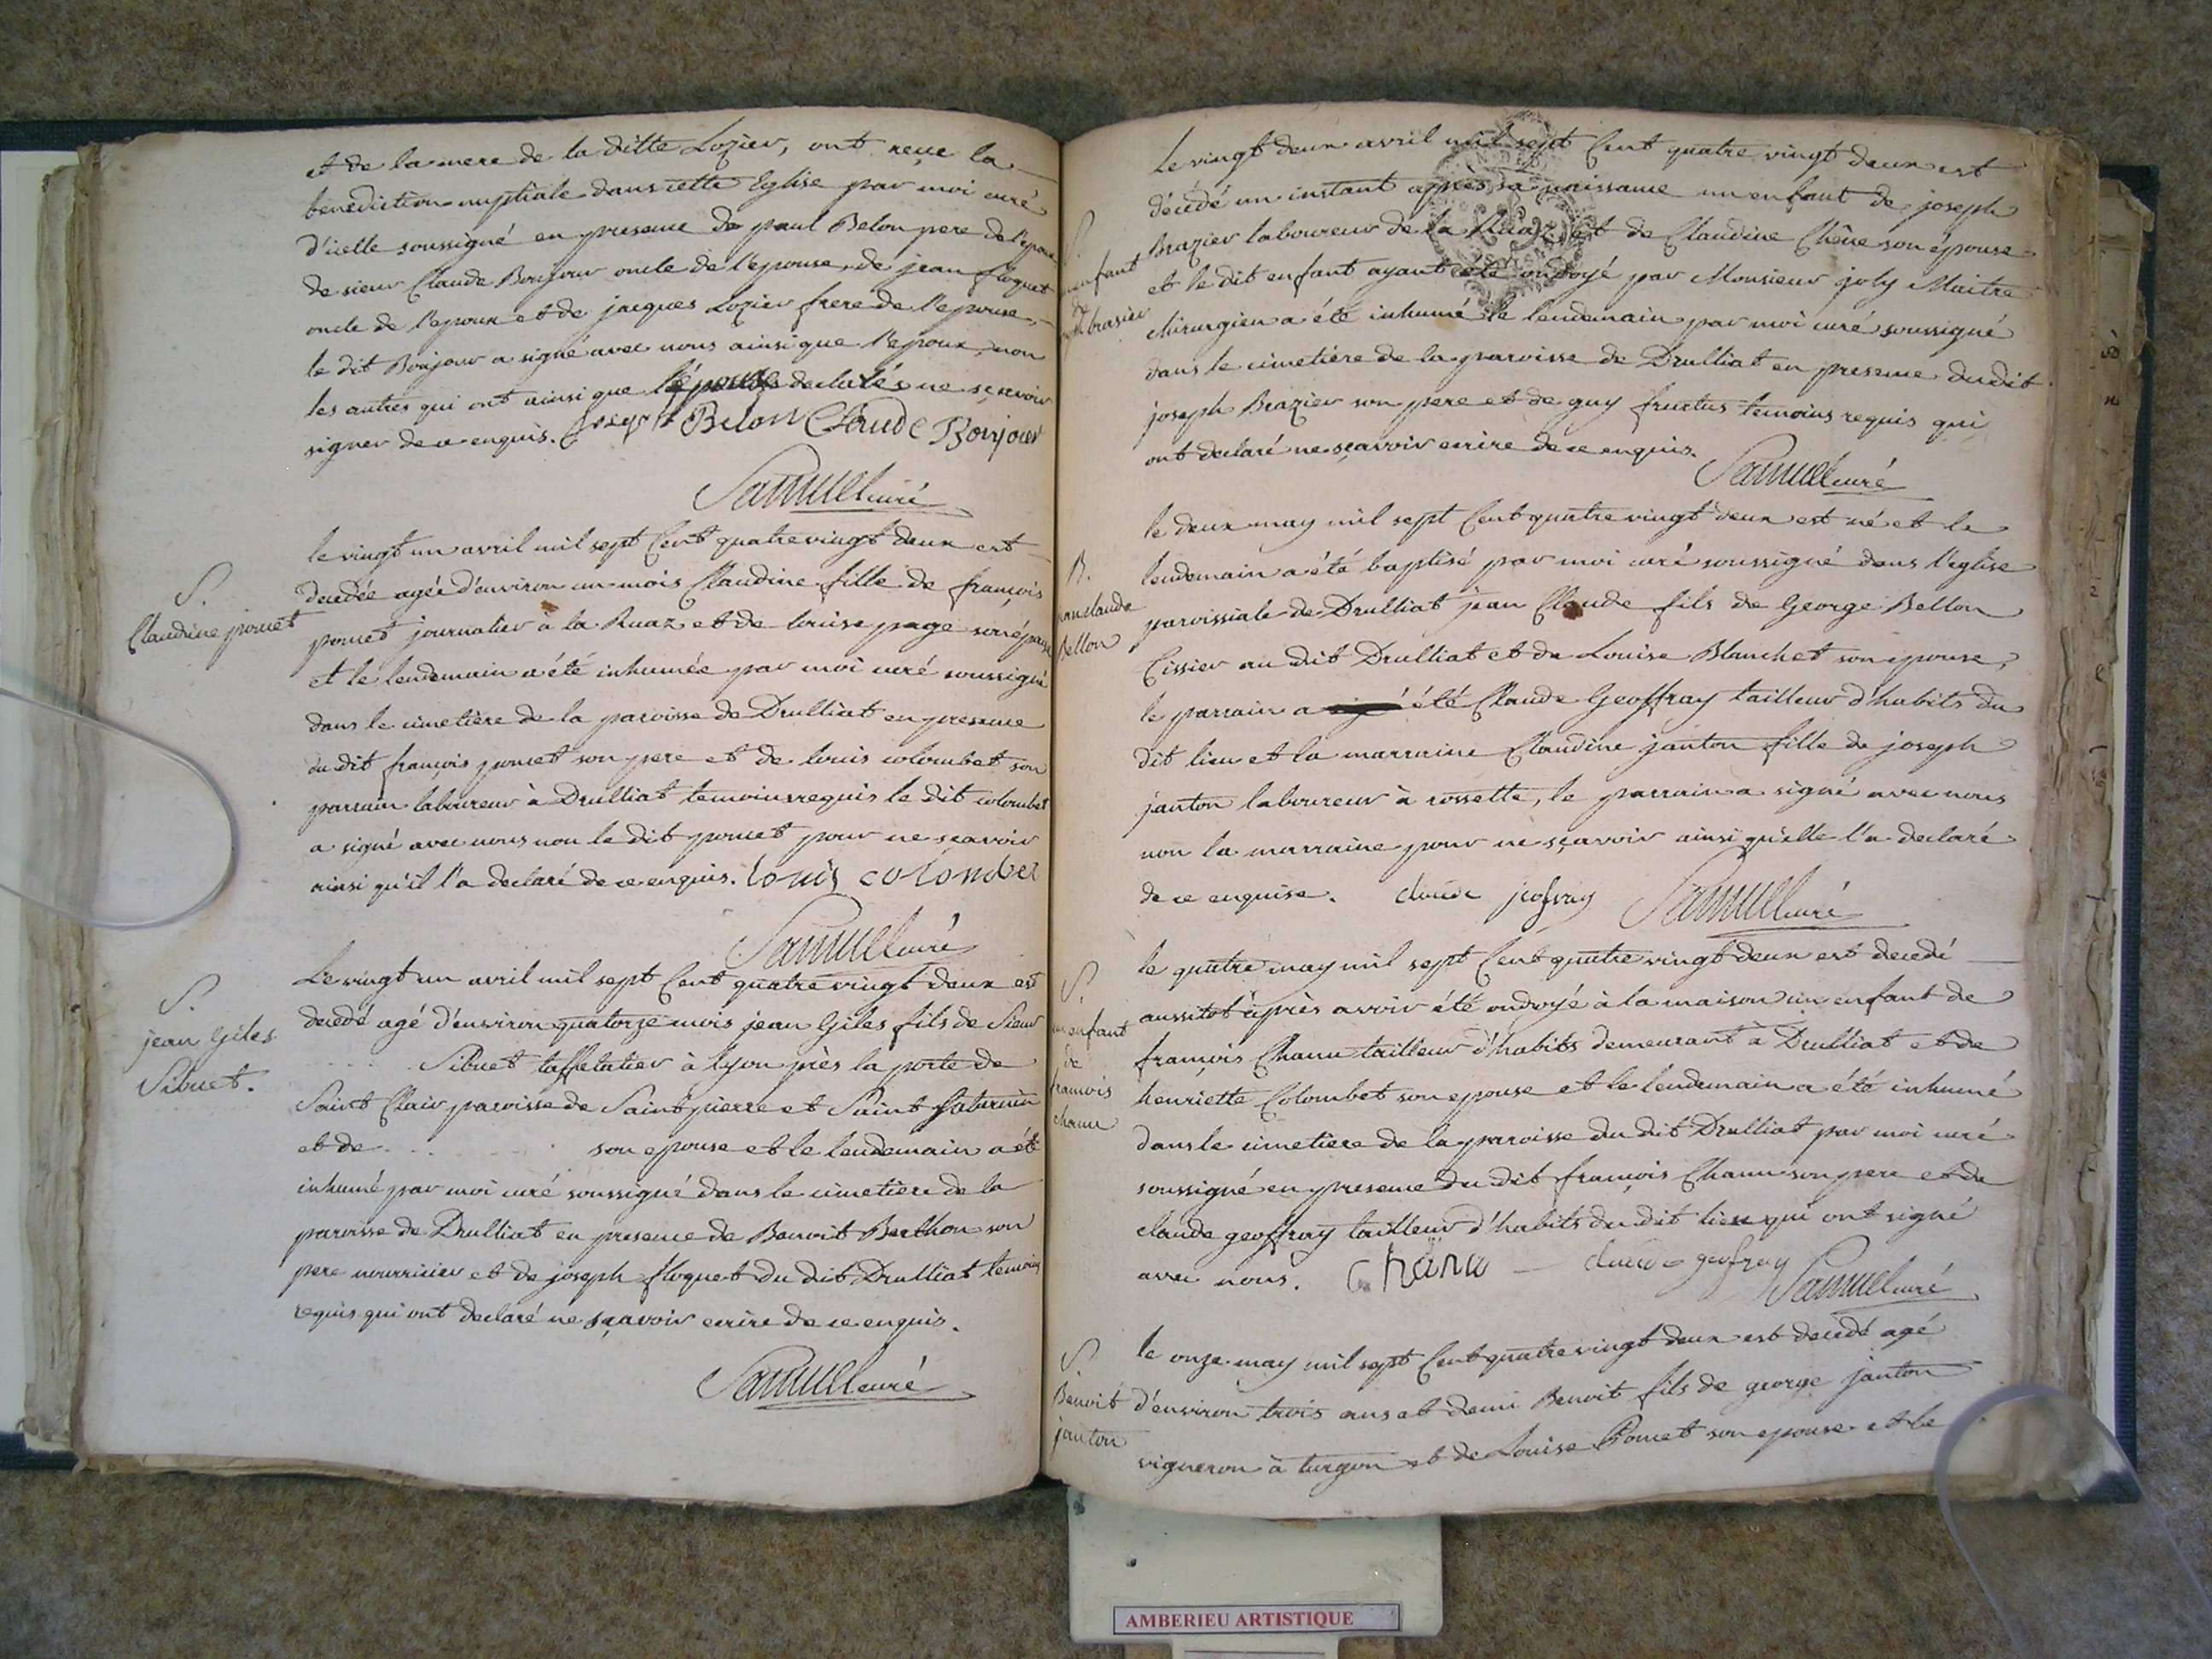 et de la mere de la ditte Lozier, ont reçue la
benediction nuptiale dans cette Eglise par moi curé
d'icelle soussigné en presence de paul Belon pere de l'epoux
de sieur Claude Bonjour oncle de l'epouse, de jean floquet
oncle de l'epoux et de jacques Lozier frere de l'epouse,
le dit Bonjour a signé avec nous ainsi que l'epoux, non
les autres qui ont ainsi que l'épouse declarés ne sçavoir
signer de ce enquis. Joseph Belon Claude Bonjour
Samuel curé
S.
Claudine poncet
le vingt un avril mil sept Cent quatre vingt deux est
decedée agée d'environ un mois Claudine fille de françois
poncet journalier à la Ruaz et de louise page son épouse
et le lendemain a été inhumée par moi curé soussigné
dans le cimetière de la paroisse de Drulliat en presence
du dit françois poncet son pere et de louis colombet son
parrain laboureur à Drulliat temoins requis le dit colombet
a signé avec nous non le dit poncet pour ne sçavoir
ainsi qu'il l'a declaré de ce enquis. louis colombet
Samuel curé
S.
jean Giles
Sibuet.
Le vingt un avril mil sept Cent quatre vingt deux est
decedé agé d'environ quatorze mois jean Giles fils de Sieur
. . . . . Sibuet taffetatier à lyon près la porte de
Saint Clair paroisse de Saint pierre et Saint Saturnin
et de . . . . . son epouse et le lendemain a été
inhumé par moi curé soussigné dans le cimetiere de la
paroisse de Drulliat en presence de Benoit Berthon son
pere nourricier et de joseph floquet du dit Drulliat temoins
requis qui ont declaré ne sçavoir ecrire de ce enquis.
Samuel curé
S.
enfant
de
brasier
Le vingt deux avril mil sept Cent quatre vingt deux est
décédé un instant après sa naissance un enfant de joseph
Brazier laboureur de la Ruaz et de Claudine Chêne son épouse
et le dit enfant ayant été ondoyé par Monsieur joly Maitre
chirurgien a été inhumé le lendemain par moi curé soussigné
dans le cimetiére de la paroisse de Drulliat en presence du dit
joseph Brazier son pere et de guy fructus temoins requis qui
ont declaré ne sçavoir ecrire de ce enquis.
Samuel curé
B.
jean claude
Bellon
le deux may mil sept Cent quatre vingt deux est né et le
lendemain a été baptisé par moi curé soussigné dans l'eglise
paroissiale de Drulliat jean Claude fils de George Bellon
Tissier au dit Drulliat et de Louise Blanchet son epouse,
le parrain a été Claude Geoffray tailleur d'habits du
dit lieu et la marraine Claudine janton fille de joseph
janton laboureur à rossette, le parrain a signé avec nous
non la marraine pour ne sçavoir ainsi qu'elle l'a declaré
de ce enquise. claude jeofray Samuel curé
S.
un enfant
de
francois
chanu
le quatre may mil sept Cent quatre vingt deux est decedé
aussitot après avoir été ondoyé à la maison un enfant de
françois Chanu tailleur d'habits demeurant à Drulliat et de
henriette Colombet son epouse et le lendemain a été inhumé
dans le cimetiere de la paroisse du dit Drulliat par moi curé
soussigné en presence du dit françois Chanu son pere et de
claude geoffray tailleur d'habits du dit lieu qui ont signé
avec nous. Chanu claude geofray
Samuel curé
S.
Benoit
janton
le onze may mil sept Cent quatre vingt deux est decedé agé
d'environ trois ans et demi Benoit fils de george janton
vigneron à turgon et de Louise Poncet son epouse et le
AMBERIEU ARTISTIQUE